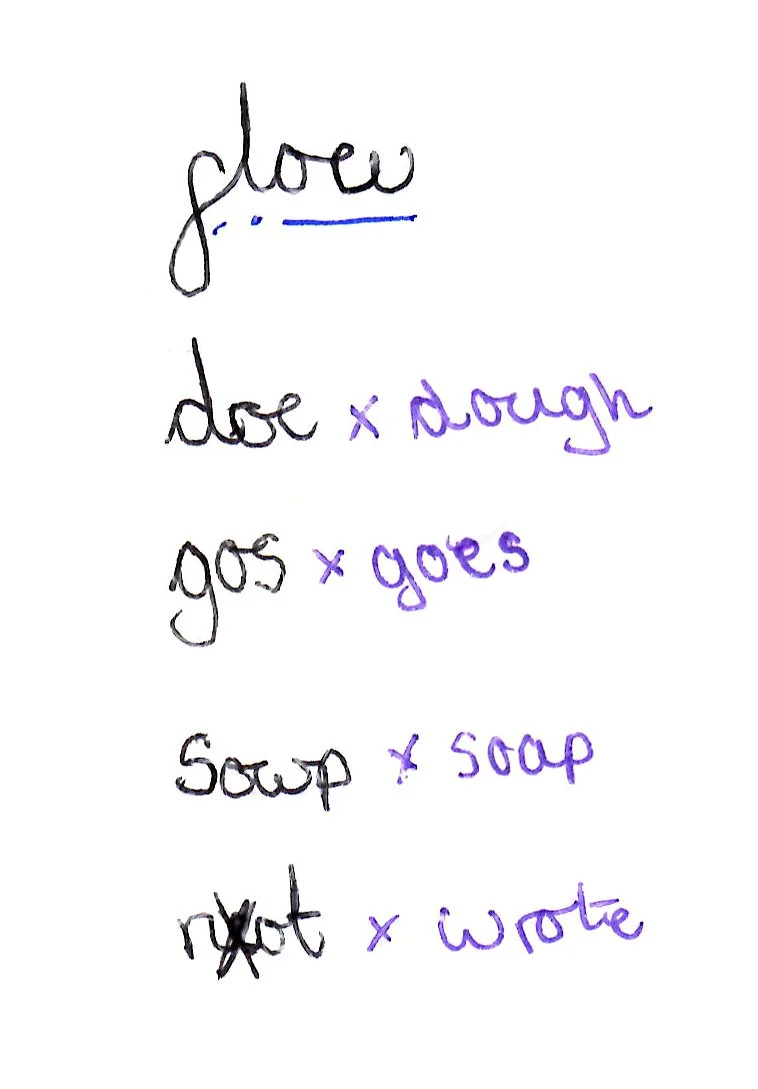 glow
doe x dough
gos x goes
sowp x soap
rot x wrote